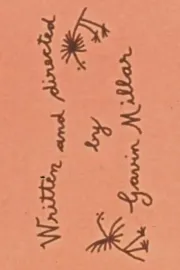 Written and directed
by
Gavin Millar